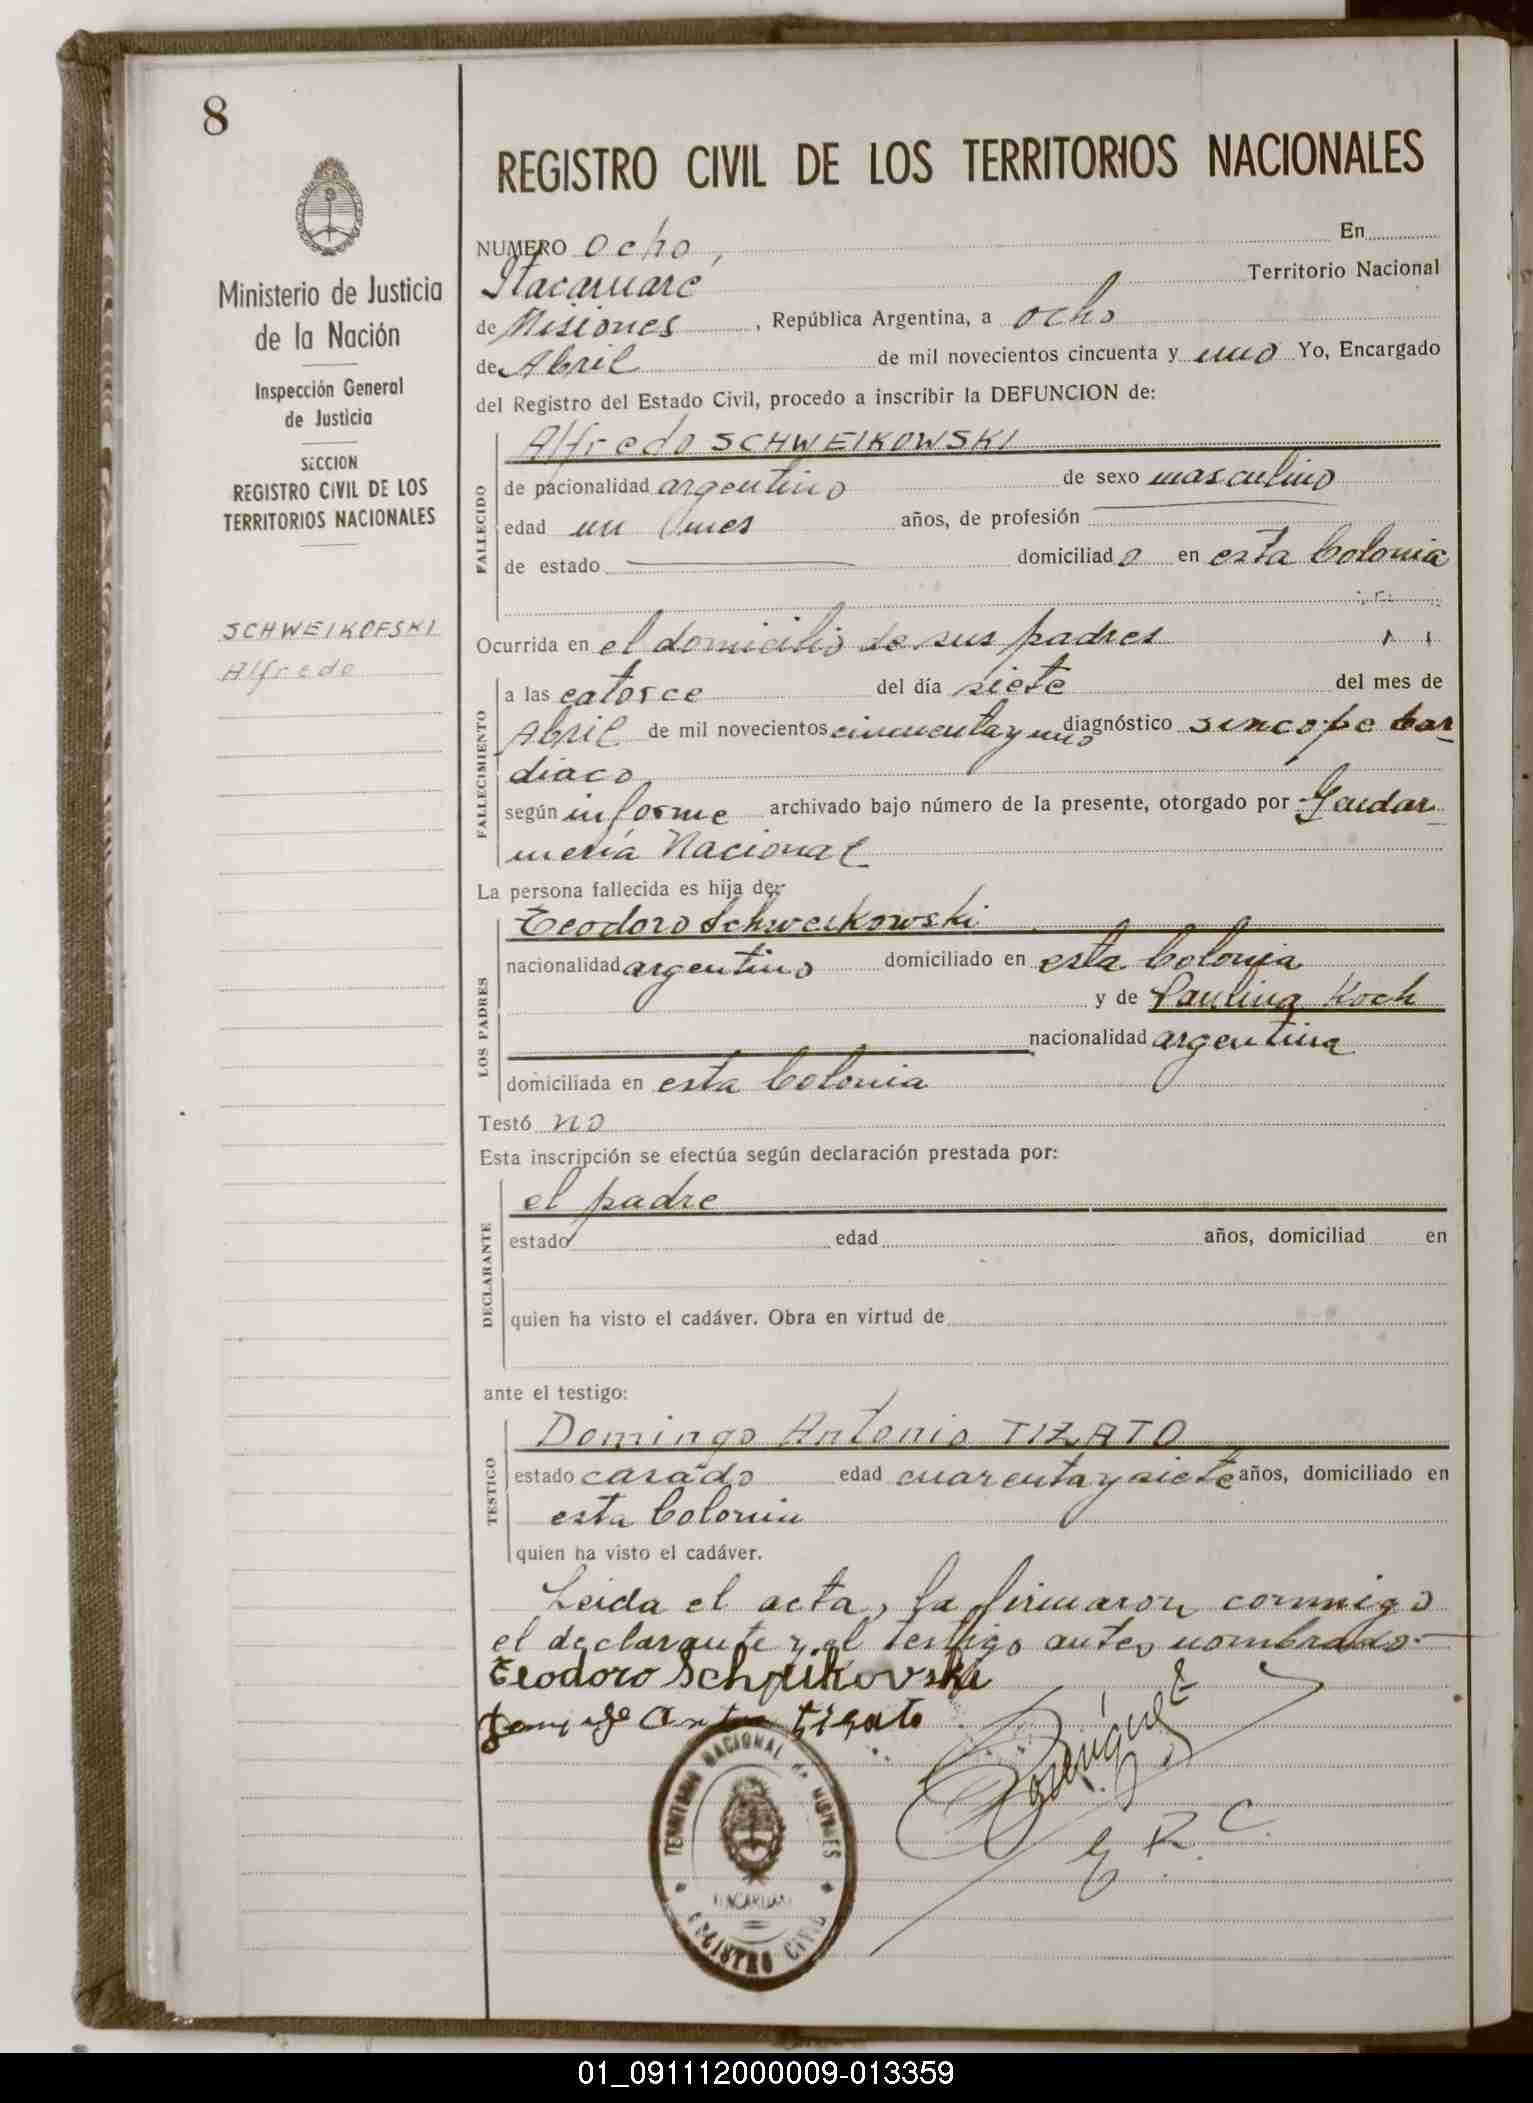 8
Ministerio de Justicia
de la Nación
Inspección General
de Justicia
SECCION
REGISTRO CIVIL DE LOS
TERRITORIOS NACIONALES
SCHWEIKOFSKI
Alfredo
REGISTRO CIVIL DE LOS TERRITORIOS NACIONALES
NUMERO Ocho, En
Itacaruaré Territorio Nacional
de Misiones, República Argentina, a ocho
de Abril de mil novecientos cincuenta y uno Yo, Encargado
del Registro del Estado Civil, procedo a inscribir la DEFUNCION de:
Alfredo SCHWEIKOWSKI
FALLECIDO
de nacionalidad argentino de sexo masculino
edad un mes años, de profesión
de estado domiciliado en esta Colonia
Ocurrida en el domicilio de sus padres
FALLECIMIENTO
a las catorce del día siete del mes de
Abril de mil novecientos cincuenta y uno diagnóstico sincope car
diaco
según informe archivado bajo número de la presente, otorgado por Gendar
mería Nacional
La persona fallecida es hija de:
LOS PADRES
Teodoro Schweikowski
nacionalidad argentino domiciliado en esta Colonia
y de Paulina Koch
nacionalidad argentina
domiciliada en esta Colonia
Testó no
Esta inscripción se efectúa según declaración prestada por:
DECLARANTE
el padre
estado edad años, domiciliad en
quien ha visto el cadáver. Obra en virtud de
ante el testigo:
TESTIGO
Domingo Antonio TIZATO
estado casado edad cuarenta y siete años, domiciliado en
esta Colonia
quien ha visto el cadáver.
Leida el acta, la firmaron conmigo
el declarante y el testigo antes nombrado.-
Teodoro Scheikovski
tizato
Rodríguez
E. R. C.
TERRITORIO NACIONAL DE MISIONES
ITACARUARE
REGISTRO CIVIL
01_091112000009-013359